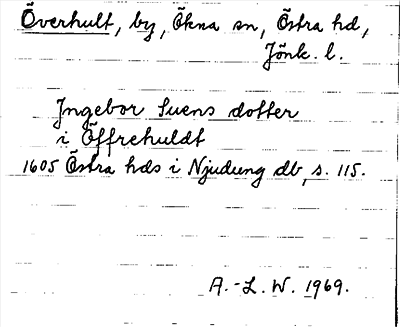 Överhult, by, Ökna sn, Östra hd,
Jönk. l.
Jngebor Suens dotter
i Öffrehuldt
1605 Östra hds i Njudung db, s. 115.
A.-L. W. 1969.